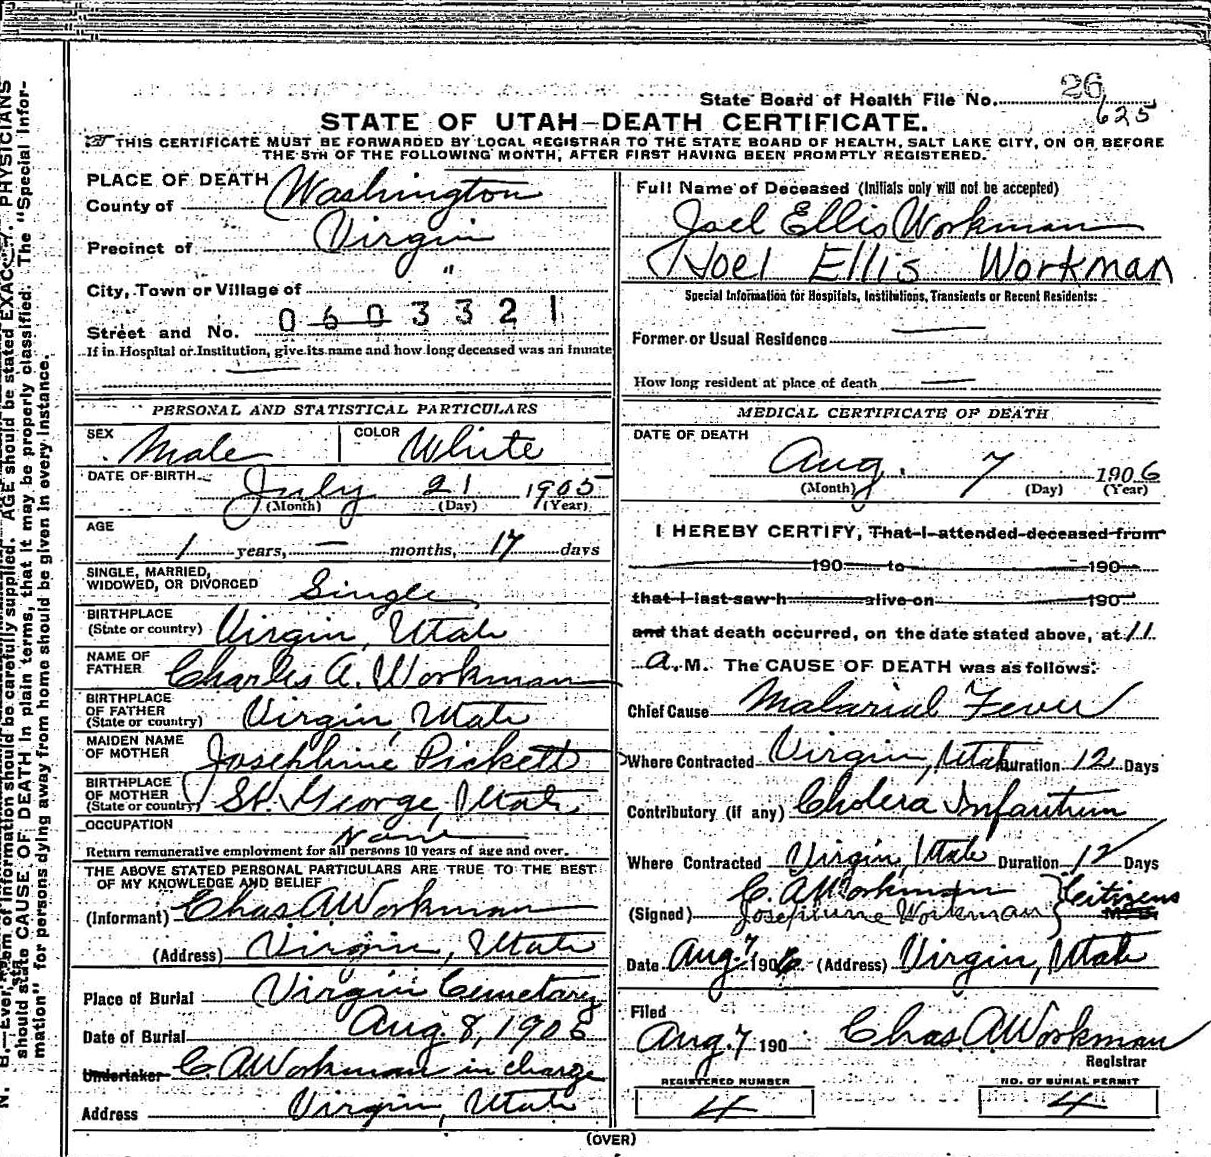 26
State Board of Health File No. 625
STATE OF UTAH—DEATH CERTIFICATE.
THIS CERTIFICATE MUST BE FORWARDED BY LOCAL REGISTRAR TO THE STATE BOARD OF HEALTH, SALT LAKE CITY, ON OR BEFORE
THE 5TH OF THE FOLLOWING MONTH, AFTER FIRST HAVING BEEN PROMPTLY REGISTERED.
PLACE OF DEATH
County of Washington
Precinct of Virgin
City, Town or Village of "
Street and No. 0603321
If in Hospital or Institution, give its name and how long deceased was an Inmate
—
PERSONAL AND STATISTICAL PARTICULARS
SEX Male COLOR White
DATE OF BIRTH July 21 1905
(Month) (Day) (Year)
AGE
1 years, — months, 17 days
SINGLE, MARRIED,
WIDOWED, OR DIVORCED Single
BIRTHPLACE
(State or country) Virgin, Utah
NAME OF
FATHER Charles A. Workman
BIRTHPLACE
OF FATHER
(State or country) Virgin, Utah
MAIDEN NAME
OF MOTHER Josephine Pickett
BIRTHPLACE
OF MOTHER
(State or country) St. George, Utah
OCCUPATION None
Return remunerative employment for all persons 10 years of age and over.
THE ABOVE STATED PERSONAL PARTICULARS ARE TRUE TO THE BEST
OF MY KNOWLEDGE AND BELIEF
(Informant) Chas A Workman
(Address) Virgin, Utah
Place of Burial Virgin Cemetary
Date of Burial Aug 8, 1906
Undertaker C. A Workman in charge
Address Virgin, Utah
Full Name of Deceased (Initials only will not be accepted)
Joel Ellis Workman
Joel Ellis Workman
Special Information for Hospitals, Institutions, Transients or Recent Residents:
Former or Usual Residence —
How long resident at place of death —
MEDICAL CERTIFICATE OF DEATH
DATE OF DEATH
Aug. 7 1906
(Month) (Day) (Year)
I HEREBY CERTIFY, That I attended deceased from
190 to 190
that I last saw h alive on 190
and that death occurred, on the date stated above, at 11
a. M. The CAUSE OF DEATH was as follows:
Chief Cause Malarial Fever
Where Contracted Virgin, Utah Duration 12 Days
Contributory (if any) Cholera Infantum
Where Contracted Virgin, Utah Duration 12 Days
(Signed) C. A Workman
Josephine Workman } Citizens
Date Aug 7 1906 (Address) Virgin, Utah
Filed
Aug. 7 190 Chas. A Workman
Registrar
REGISTERED NUMBER NO. OF BURIAL PERMIT
4 4
(OVER)
N. B.—Every item of information should be carefully supplied. AGE should be stated EXACTLY. PHYSICIANS
should state CAUSE OF DEATH in plain terms, that it may be properly classified. The "Special Infor-
mation" for persons dying away from home should be given in every instance.